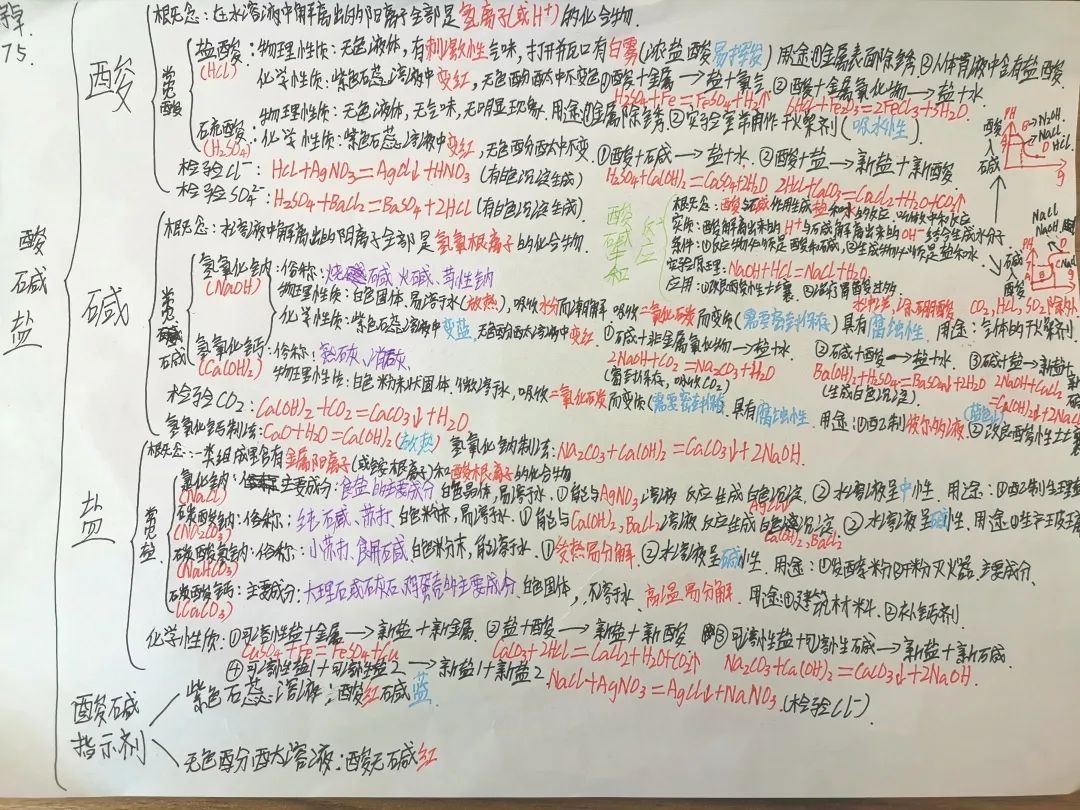 75.
酸
概念：在水溶液中解离出的阳离子全部是氢离子(或H⁺)的化合物.
常见酸
盐酸：物理性质：无色液体，有刺激性气味，打开瓶口有白雾(浓盐酸易挥发) 用途①金属表面除锈②人体胃液中含有盐酸
(HCl)
化学性质：紫色石蕊溶液中变红，无色酚酞中不变色①酸+金属→盐+氢气 ②酸+金属氧化物→盐+水
H₂SO₄+Fe=FeSO₄+H₂↑ 6HCl+Fe₂O₃=2FeCl₃+3H₂O
硫酸：物理性质：无色液体，无气味，无明显现象 用途：①金属除锈②实验室常用作干燥剂(吸水性)
(H₂SO₄)
化学性质：紫色石蕊溶液中变红，无色酚酞中不变 ①酸+碱→盐+水 ②酸+盐→新盐+新酸
H₂SO₄+Ca(OH)₂=CaSO₄+2H₂O 2HCl+CaCO₃=CaCl₂+H₂O+CO₂↑
检验Cl⁻：HCl+AgNO₃=AgCl↓+HNO₃(有白色沉淀生成)
检验SO₄²⁻：H₂SO₄+BaCl₂=BaSO₄+2HCl(有白色沉淀生成)
酸碱中和反应
概念：酸与碱作用生成盐和水的反应，叫做中和反应
实质：酸解离出来的H⁺与碱解离出来的OH⁻结合生成水分子
条件：①反应物必须是酸和碱，②生成物必须是盐和水
实验原理：NaOH+HCl=NaCl+H₂O.
应用：①改良酸性土壤 ②治疗胃酸过多
酸→碱
PH
NaOH
NaCl
HCl
g
碱→酸
PH
NaCl
NaOH
g
酸碱盐
碱
概念：水溶液中解离出的阴离子全部是氢氧根离子的化合物.
常见碱
氢氧化钠：俗称：烧碱 火碱、苛性钠
(NaOH)
物理性质：白色固体，易溶于水(放热)，吸收水分而潮解 吸收二氧化碳而变质(需要密封保存) 具有腐蚀性. 用途：气体的干燥剂.
CO₂, HCl, SO₂除外
化学性质：紫色石蕊溶液中变蓝，无色酚酞溶液中变红 ①碱+非金属氧化物→盐+水 ②碱+酸→盐+水 ③碱+盐→新盐+新碱
2NaOH+CO₂=Na₂CO₃+H₂O Ba(OH)₂+H₂SO₄=BaSO₄↓+2H₂O 2NaOH+CuCl₂
(密封保存，吸收CO₂) (生成白色沉淀) =Cu(OH)₂↓+2NaCl
(蓝色↓)
氢氧化钙：俗称：熟石灰、消石灰
(Ca(OH)₂)
物理性质：白色粉末状固体. 微溶于水，吸收二氧化碳而变质(需要密封保存) 具有腐蚀性. 用途：①配制波尔多液 ②改良酸性土壤
检验CO₂：Ca(OH)₂+CO₂=CaCO₃↓+H₂O
氢氧化钙制法：CaO+H₂O=Ca(OH)₂(放热) 氢氧化钠制法：Na₂CO₃+Ca(OH)₂=CaCO₃↓+2NaOH.
盐
概念：一类组成里含有金属阳离子(或铵根离子)和酸根离子的化合物
常见盐
氯化钠：主要成分：食盐的主要成分 白色晶体，易溶于水. ①能与AgNO₃溶液反应生成白色沉淀. ②水溶液呈中性. 用途：①配制生理盐
(NaCl) AgCl↓
碳酸钠：俗称：纯碱、苏打. 白色粉末，易溶于水. ①能与Ca(OH)₂, BaCl₂溶液反应生成白色沉淀 ②水溶液呈碱性. 用途：①生产玻璃
(Na₂CO₃) Ca(OH)₂, BaCl₂
碳酸氢钠：俗称：小苏打、食用碱 白色粉末，能溶于水. ①受热易分解 ②水溶液呈碱性. 用途：①发酵粉②干粉灭火器，主要成分.
(NaHCO₃)
碳酸钙：主要成分：大理石或石灰石，鸡蛋壳的主要成分. 白色固体，不溶于水. 高温易分解. 用途：①建筑材料. ②补钙剂.
(CaCO₃)
化学性质：①可溶性盐+金属→新盐+新金属 ②盐+酸→新盐+新酸 ③可溶性盐+可溶性碱→新盐+新碱.
CuSO₄+Fe=FeSO₄+Cu CaCO₃+2HCl=CaCl₂+H₂O+CO₂↑ Na₂CO₃+Ca(OH)₂=CaCO₃↓+2NaOH.
④可溶性盐1+可溶性盐2→新盐1+新盐2 NaCl+AgNO₃=AgCl↓+NaNO₃(检验Cl⁻)
酸碱指示剂
紫色石蕊溶液：酸红碱蓝
无色酚酞溶液：酸无碱红